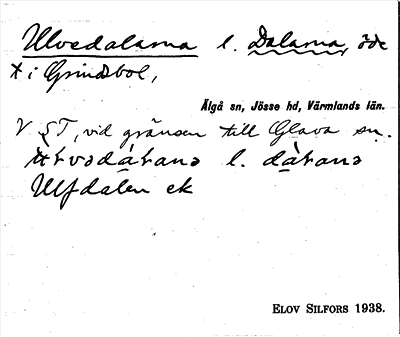 Ulvedalarna l. Dalarna, öde
t i Grindsbol,
Älgå sn, Jösse hd, Värmlands län.
V ST, vid gränsen till Glava sn.
l. dàtana
Ulfdalen ek
ELOV SILFORS 1938.